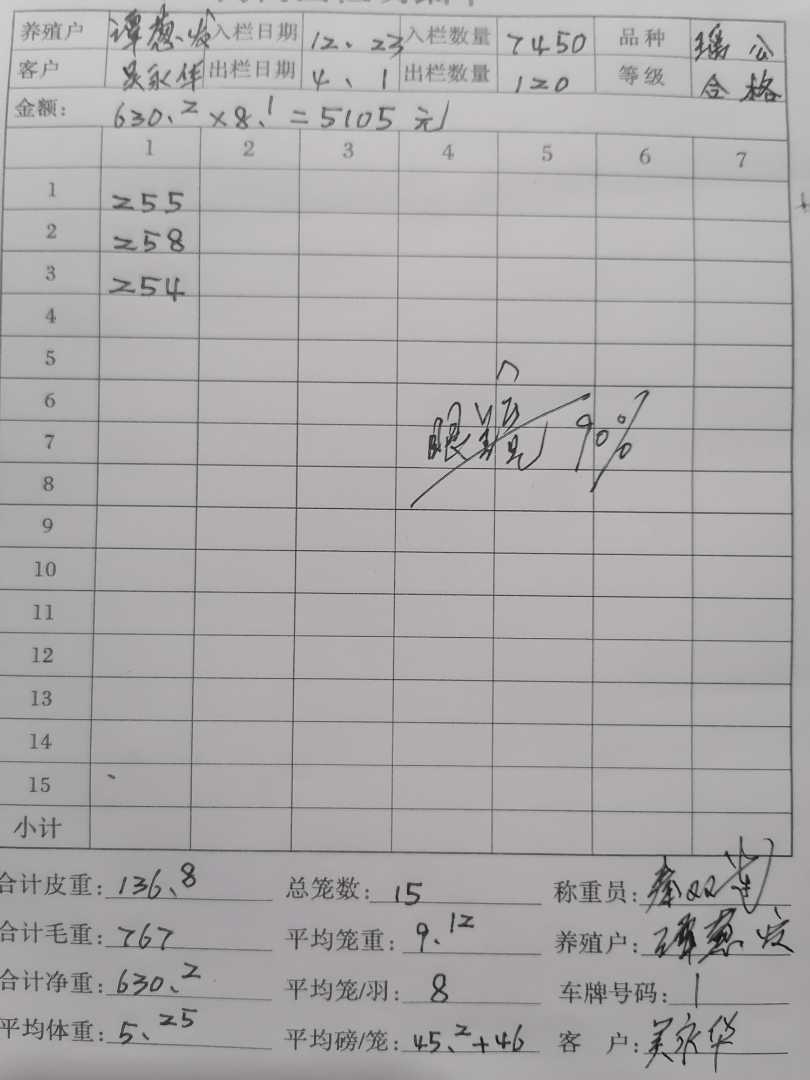 养殖户 谭惹发 入栏日期 12、23 入栏数量 7450 品种 瑶公
客户 吴永华 出栏日期 4、1 出栏数量 120 等级 合格
金额: 630.2×8.1=5105元
1 2 3 4 5 6 7
1 255
2 258
3 254
4
5
6
7 眼 90%
8
9
10
11
12
13
14
15
小计
合计皮重: 136.8 总笼数: 15 称重员:
合计毛重: 767 平均笼重: 9.12 养殖户: 谭惹发
合计净重: 630.2 平均笼/羽: 8 车牌号码: 1
平均体重: 5.25 平均磅/笼: 45.2+46 客 户: 吴永华